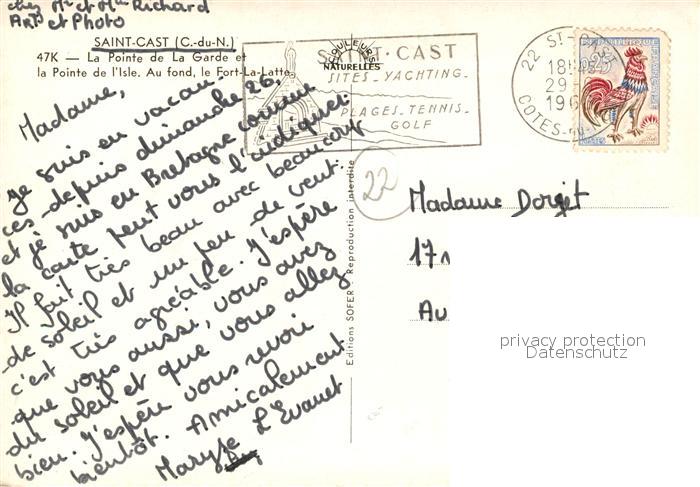 chez Mr et Mme Richard
Art et Photo
SAINT-CAST (C.-du-N.)
47K — La Pointe de La Garde et
la Pointe de l'Isle. Au fond, le Fort-La-Latte.
COULEURS
NATURELLES
SAINT-CAST
SITES_YACHTING_
PLAGES_TENNIS_
GOLF
22 ST-
18H45
29
196
COTES-
REPUBLIQUE FRANCAISE
0,25
POSTES
Madame,
Je suis en vacan-
ces depuis dimanche 26,
et je suis en Bretagne comme
la carte peut vous l'indiquer.
Il fait très beau avec beaucoup
de soleil et un peu de vent.
c'est très agréable. J'espère
que vous aussi, vous avez
du soleil et que vous allez
bien. J'espère vous revoir
bientôt. Amicalement
Maryse L'Evanet
22
Editions SOFER - Reproduction interdite
Madame Dorget
17
Au
privacy protection
Datenschutz